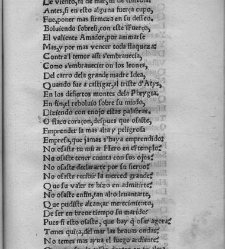 De viento, ni de mar, ni de
Antes, si en esto alguna fuerça cupo,
Fue, poner mas firmeza en su desseo,
Boluiendo sobre si, con este esfuerço,
El valiente Amador, por animarse
Mas, y por mas vencer toda flaqueza:
Contra el temor assi s'embrauescia,
Como s'embrauescer on los leones,
Del carro dela grande madre Idea,
Quando fue a castigar, al triste d'Atys,
En los desiertos montes dela Phrygia,
En fin, el reboluio sobre su miedo,
Diziendo con enojo estas palabras.
O flaco coraçon, despues que osaste,
Emprender la mas alta y peligrosa
Empresa, que jamas s'haya emprendido:
No osaste tu mirar Hero en el templo:
No osaste tener cuenta con sus ojos:
No osaste declararte por su siervo:
No osaste recebir la merced grande:
Qu su valer te hizo en admitirte:
No osaste enfin, tan alto leuantarte,
Que pudiste alcançar merecimiento,
De ser en breue tiempo su marido?
Pues si osaste esto, que hay q osar agora:
Temes quiça, del mar las brauas ondas:
No temer mas ayna el fuego ardiente